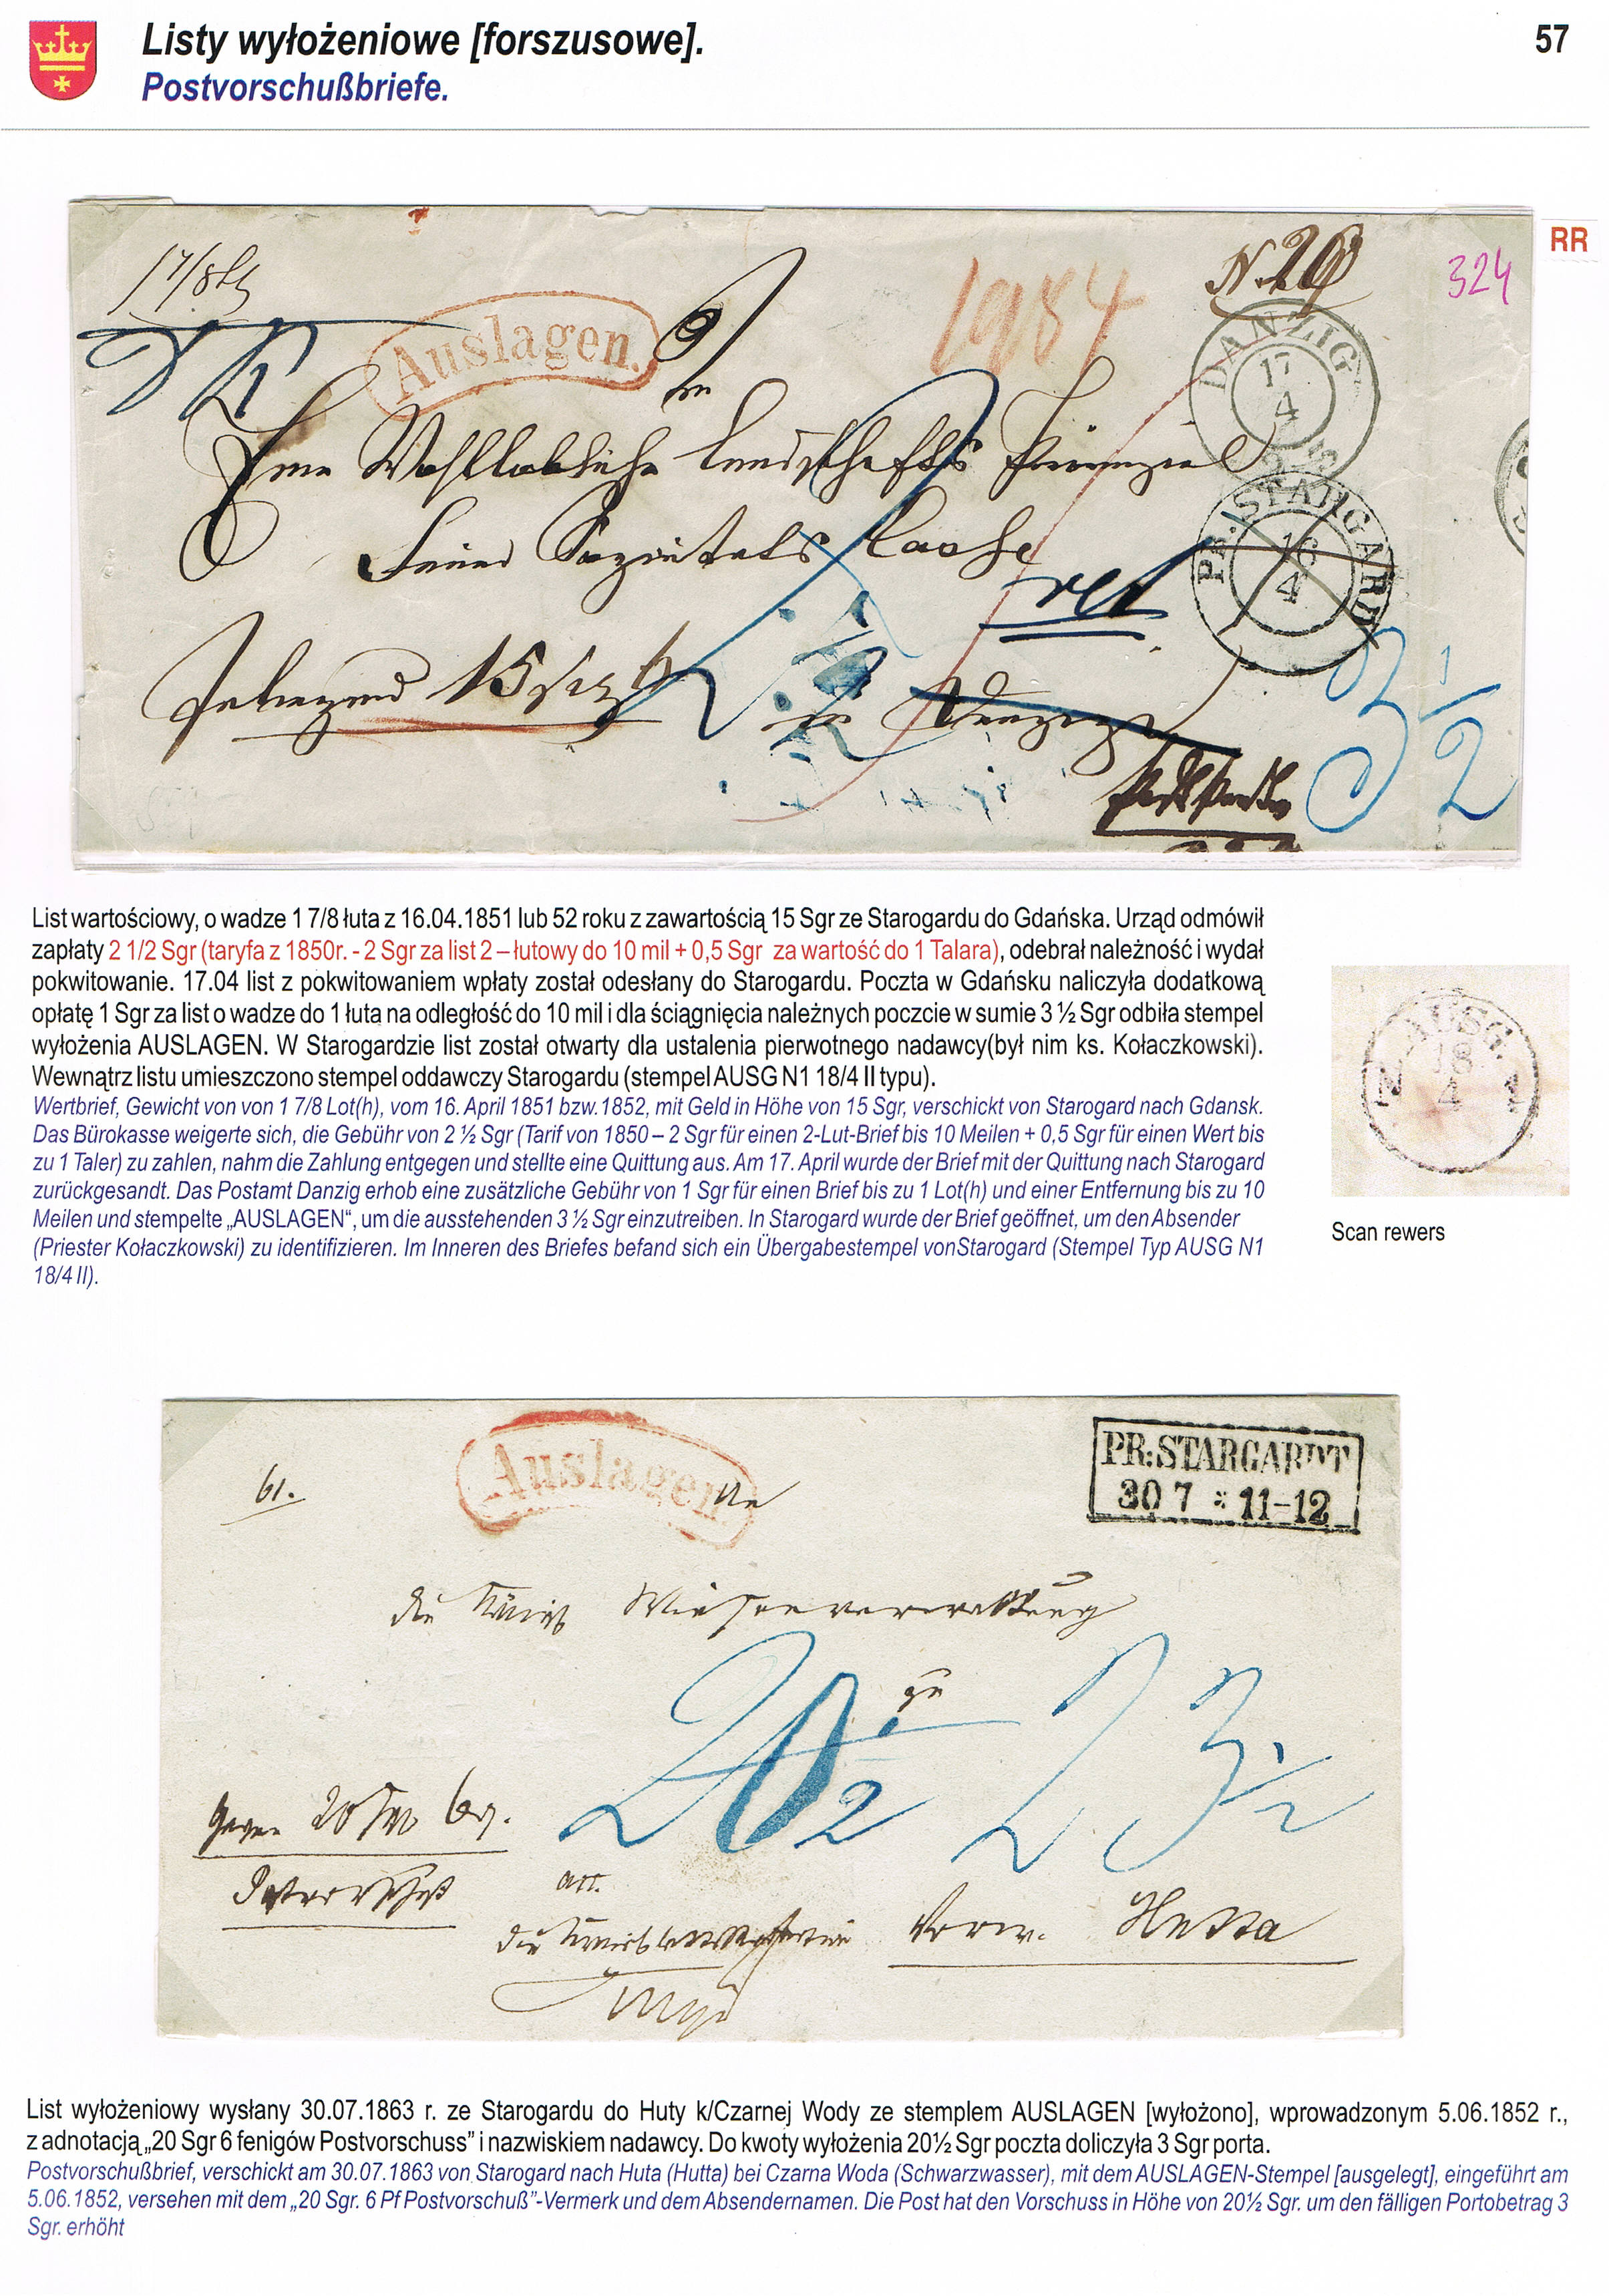 Listy wyłożeniowe [forszusowe].
57
Postvorschußbriefe.
RR
324
N. 26
1984
17/8 Lth
Auslagen.
DANZIG
17
4
An
Eine Wohllöbliche Landschafts Provinzial
Feuer Sozietäts Casse
PR. STARGARD
16
4
ret
Inliegend 15 sgr
in Danzig
3 1/2
List wartościowy, o wadze 1 7/8 łuta z 16.04.1851 lub 52 roku z zawartością 15 Sgr ze Starogardu do Gdańska. Urząd odmówił
zapłaty 2 1/2 Sgr (taryfa z 1850r. - 2 Sgr za list 2 – łutowy do 10 mil + 0,5 Sgr za wartość do 1 Talara), odebrał należność i wydał
pokwitowanie. 17.04 list z pokwitowaniem wpłaty został odesłany do Starogardu. Poczta w Gdańsku naliczyła dodatkową
opłatę 1 Sgr za list o wadze do 1 łuta na odległość do 10 mil i dla ściągnięcia należnych poczcie w sumie 3 ½ Sgr odbiła stempel
wyłożenia AUSLAGEN. W Starogardzie list został otwarty dla ustalenia pierwotnego nadawcy(był nim ks. Kołaczkowski).
Wewnątrz listu umieszczono stempel oddawczy Starogardu (stempel AUSG N1 18/4 II typu).
Wertbrief, Gewicht von von 1 7/8 Lot(h), vom 16. April 1851 bzw. 1852, mit Geld in Höhe von 15 Sgr, verschickt von Starogard nach Gdansk.
Das Bürokasse weigerte sich, die Gebühr von 2 ½ Sgr (Tarif von 1850 – 2 Sgr für einen 2-Lut-Brief bis 10 Meilen + 0,5 Sgr für einen Wert bis
zu 1 Taler) zu zahlen, nahm die Zahlung entgegen und stellte eine Quittung aus. Am 17. April wurde der Brief mit der Quittung nach Starogard
zurückgesandt. Das Postamt Danzig erhob eine zusätzliche Gebühr von 1 Sgr für einen Brief bis zu 1 Lot(h) und einer Entfernung bis zu 10
Meilen und stempelte „AUSLAGEN“, um die ausstehenden 3 ½ Sgr einzutreiben. In Starogard wurde der Brief geöffnet, um den Absender
(Priester Kołaczkowski) zu identifizieren. Im Inneren des Briefes befand sich ein Übergabestempel vonStarogard (Stempel Typ AUSG N1
18/4 II).
AUSG.
18
N 4 1
Scan rewers
Auslagen
PR: STARGARDT
30 7 * 11-12
61.
An
die Königl Wiesenverwaltung
zu
20 1/2
23 1/2
gegen 20 Sgr 6 pf.
Postvorschuß
Hutta
List wyłożeniowy wysłany 30.07.1863 r. ze Starogardu do Huty k/Czarnej Wody ze stemplem AUSLAGEN [wyłożono], wprowadzonym 5.06.1852 r.,
z adnotacją „20 Sgr 6 fenigów Postvorschuss” i nazwiskiem nadawcy. Do kwoty wyłożenia 20½ Sgr poczta doliczyła 3 Sgr porta.
Postvorschußbrief, verschickt am 30.07.1863 von Starogard nach Huta (Hutta) bei Czarna Woda (Schwarzwasser), mit dem AUSLAGEN-Stempel [ausgelegt], eingeführt am
5.06.1852, versehen mit dem „20 Sgr. 6 Pf Postvorschuß”-Vermerk und dem Absendernamen. Die Post hat den Vorschuss in Höhe von 20½ Sgr. um den fälligen Portobetrag 3
Sgr. erhöht